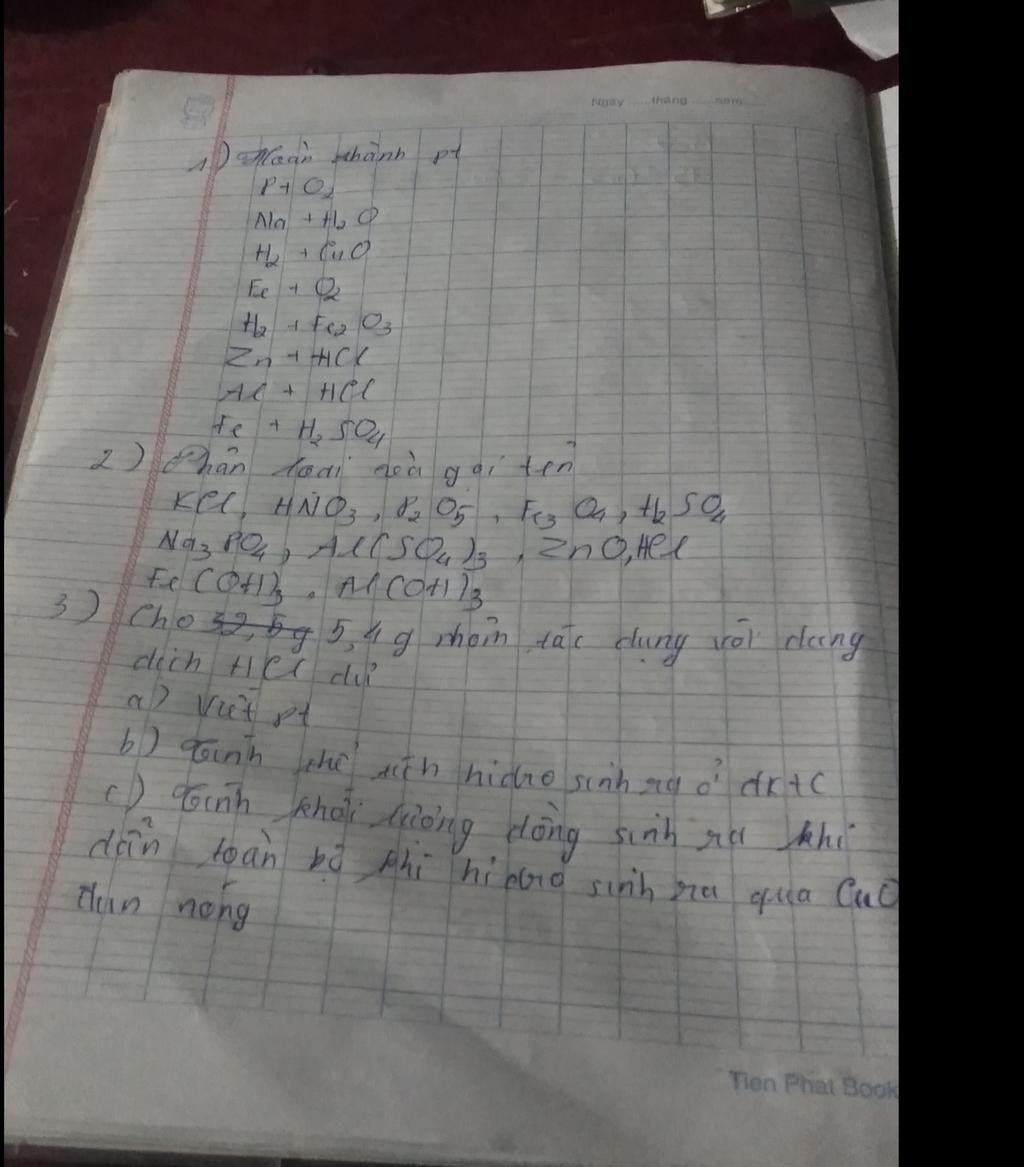 Ngày ..... tháng ..... năm .....
1) Hoàn thành pt
P + O2
Na + H2O
H2 + CuO
Fe + O2
H2 + Fe2O3
Zn + HCl
Al + HCl
Fe + H2SO4
2) Phân loại và gọi tên
KCl, HNO3, P2O5, Fe3O4, H2SO4
Na3PO4, Al(SO4)3, ZnO, HCl
Fe(OH)3, Al(OH)3
3) Cho 32,5g 5,4g nhôm tác dụng với dung
dịch HCl dư
a) Viết pt
b) Tính thể tích hidro sinh ra ở đktc
c) Tính khối lượng đồng sinh ra khi
dẫn toàn bộ khí hidro sinh ra qua CuO
đun nóng
Tien Phat Book